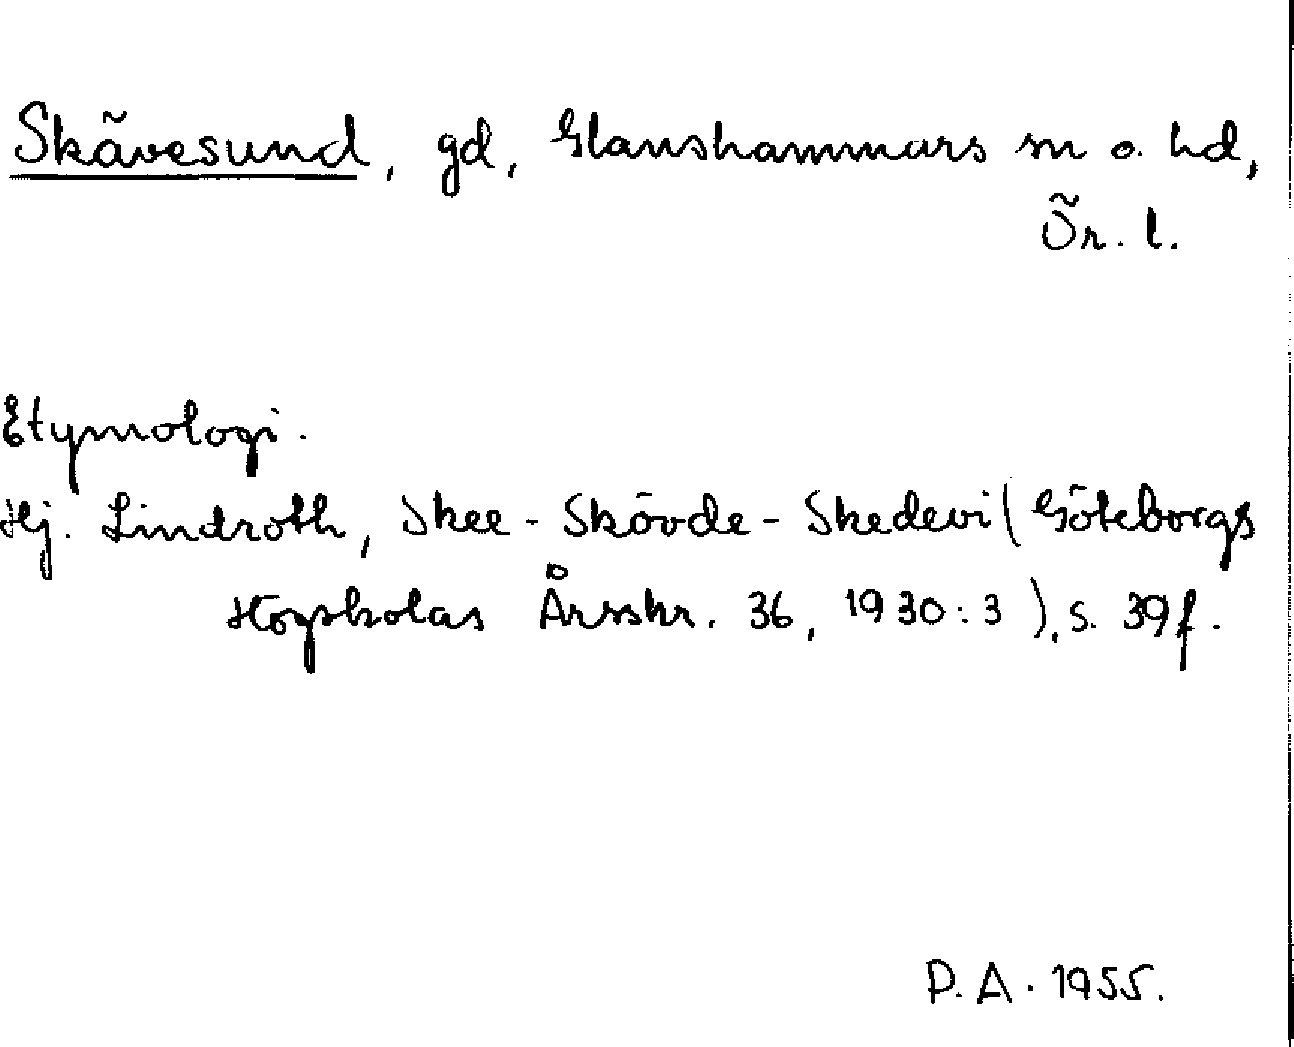 Skävesund, gd, Glanshammars sn o. hd,
Ör. l.
Etymologi.
Hj. Lindroth, Skee - Skövde - Skedevi (Göteborgs
Högskolas Årsskr. 36, 1930:3), s. 39f.
P. A. 1955.